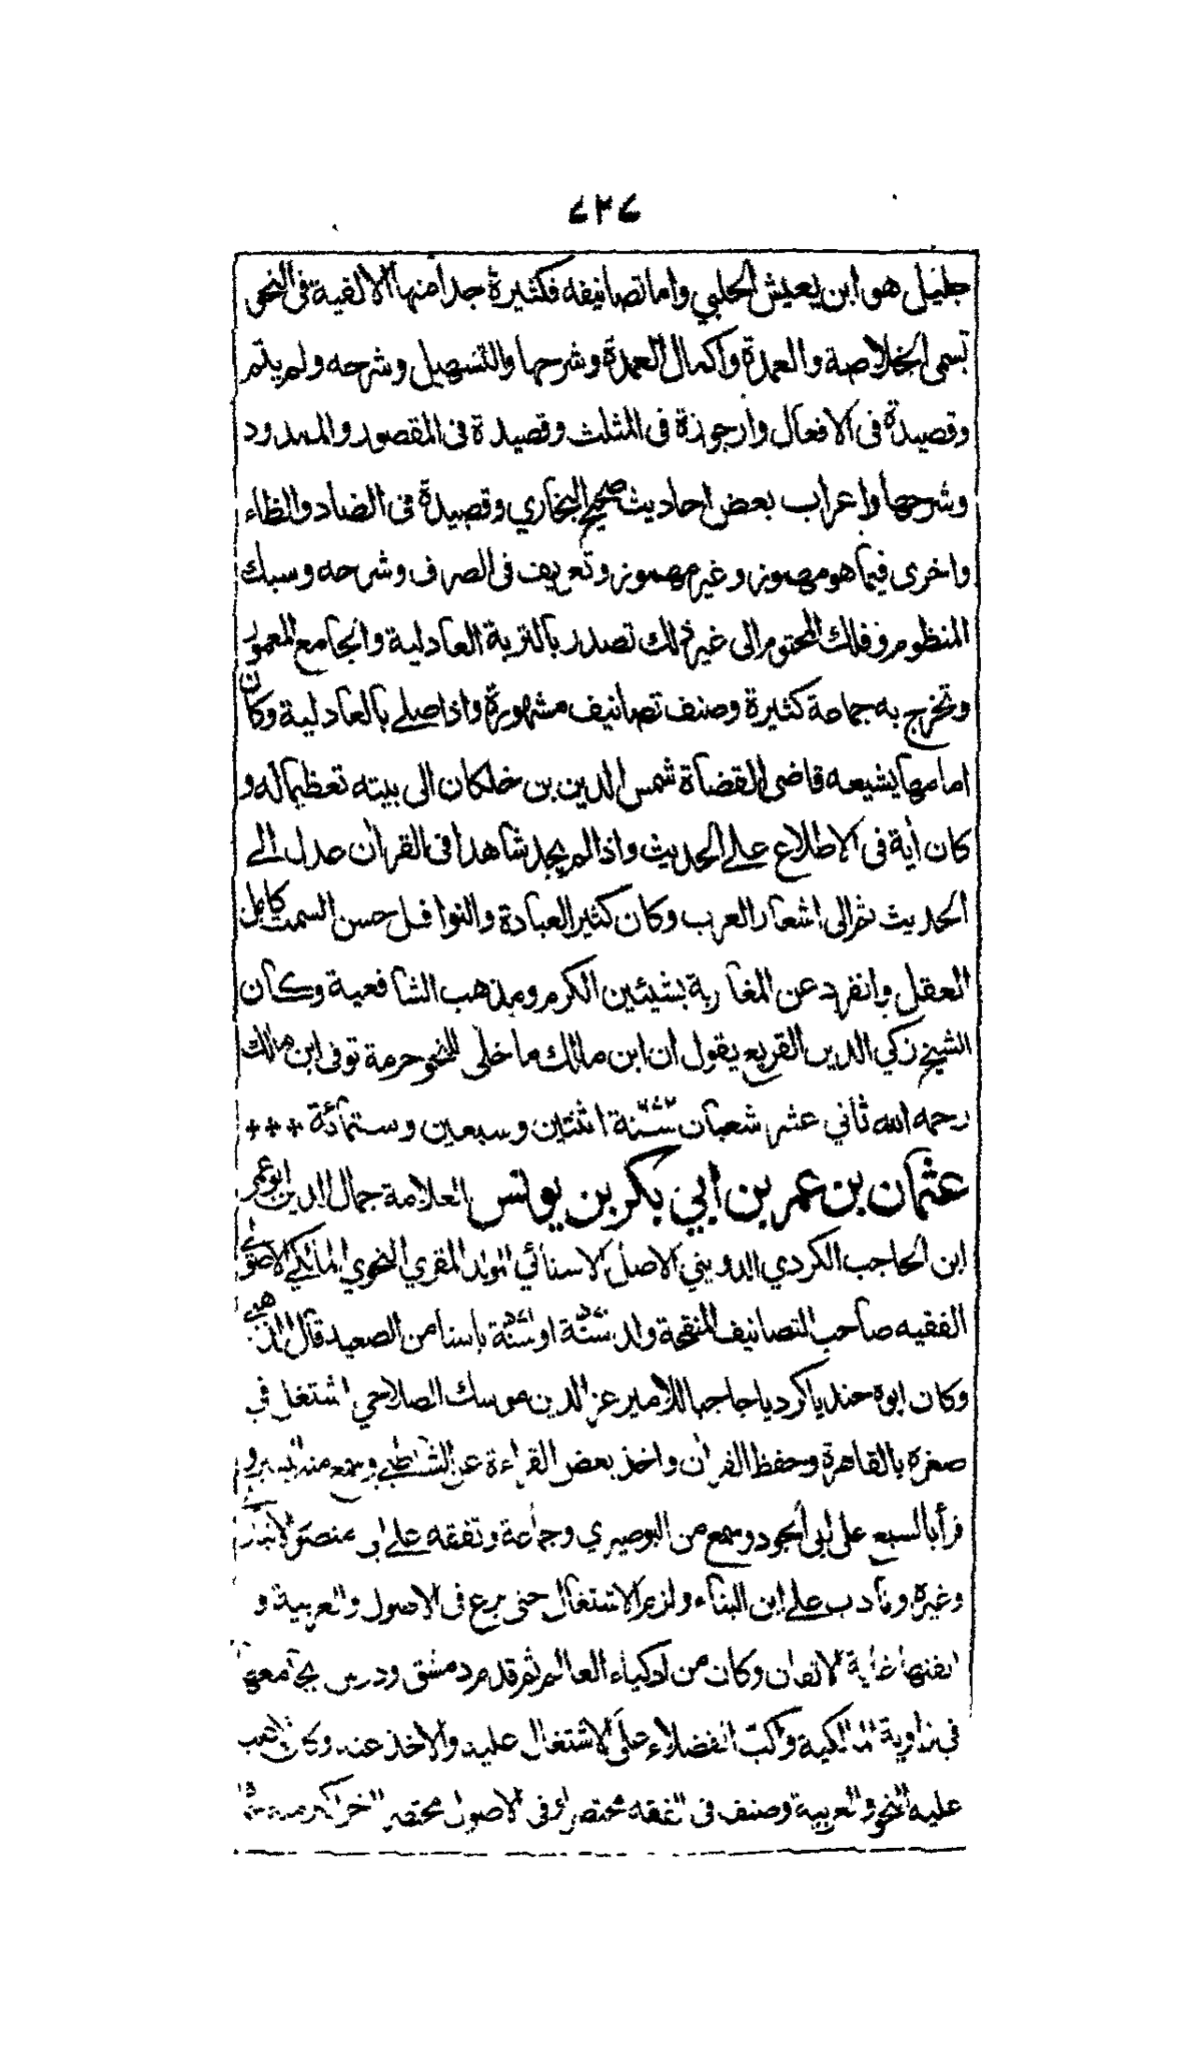 ٤٣٤
جليل هو ابن يعيش الحلبي واما تصانيفه فكثيرة جدا منها الالفية فى النحو
تسمى الخلاصة والعمدة واكمال العمدة وشرحها والتسهيل وشرحه ولم يتم
وقصيدة فى الافعال وارجوزة فى المثلث وقصيدة فى المقصور والممدود
وشرحها واعراب بعض احاديث صحيح البخاري وقصيدة فى الضاد والظاء
واخرى فيما هو مهموز وغير مهموز وتعريف فى الصرف وشرحه وسبك
المنظوم وفك المختوم الى غير ذلك تصدر بالتربة العادلية والجامع المعمور
وتخرج به جماعة كثيرة وصنف تصانيف مشهورة واذا صلى بالعادلية وكان
امامها يشيعه قاضى القضاة شمس الدين بن خلكان الى بيته تعظيما له و
كان أية فى الاطلاع على الحديث واذا لم يجد شاهدا فى القران عدل الى
الحديث ثم الى اشعار العرب وكان كثير العبادة والنوافل حسن السمت كامل
العقل وانفرد عن المغاربة بشيئين الكرم ومذهب الشافعية وكان
الشيخ زكي الدين القريع يقول ان ابن مالك ما خلى للنحو حرمة توفى ابن مالك
رحمه الله ثاني عشر شعبان سنة اثنتين وسبعين وستمائة
عثمان بن عمر بن ابي بكر بن يونس العلامة جمال الدين ابو عمر
ابن الحاجب الكردي الدويني الاصل الاسنائي المولد المقري النحوي المالكي الاصولي
الفقيه صاحب التصانيف المنقحة ولد سنة او سنة باسنا من الصعيد قال الذهبي
وكان ابوه جنديا كرديا حاجبا للامير عز الدين موسك الصلاحي اشتغل فى
صغره بالقاهرة وحفظ القران واخذ بعض القراءة عن الشاطبي وسمع منه اليسير و
قرأ بالسبع على ابى الجود وسمع من البوصيري وجماعة وتفقه على ابى منصور الابياري
وغيره وتأدب على ابن البناء ولزم الاشتغال حتى برع فى الاصول والعربية و
اتقنها غاية الاتقان وكان من اذكياء العالم ثم قدم دمشق ودرس بجامعها
فى زاوية المالكية واكب الفضلاء على الاشتغال عليه والاخذ عنه وكان الاغلب
عليه النحو والعربية وصنف فى الفقه مختصرا وفى الاصول مختصرا اخر اكبر منه